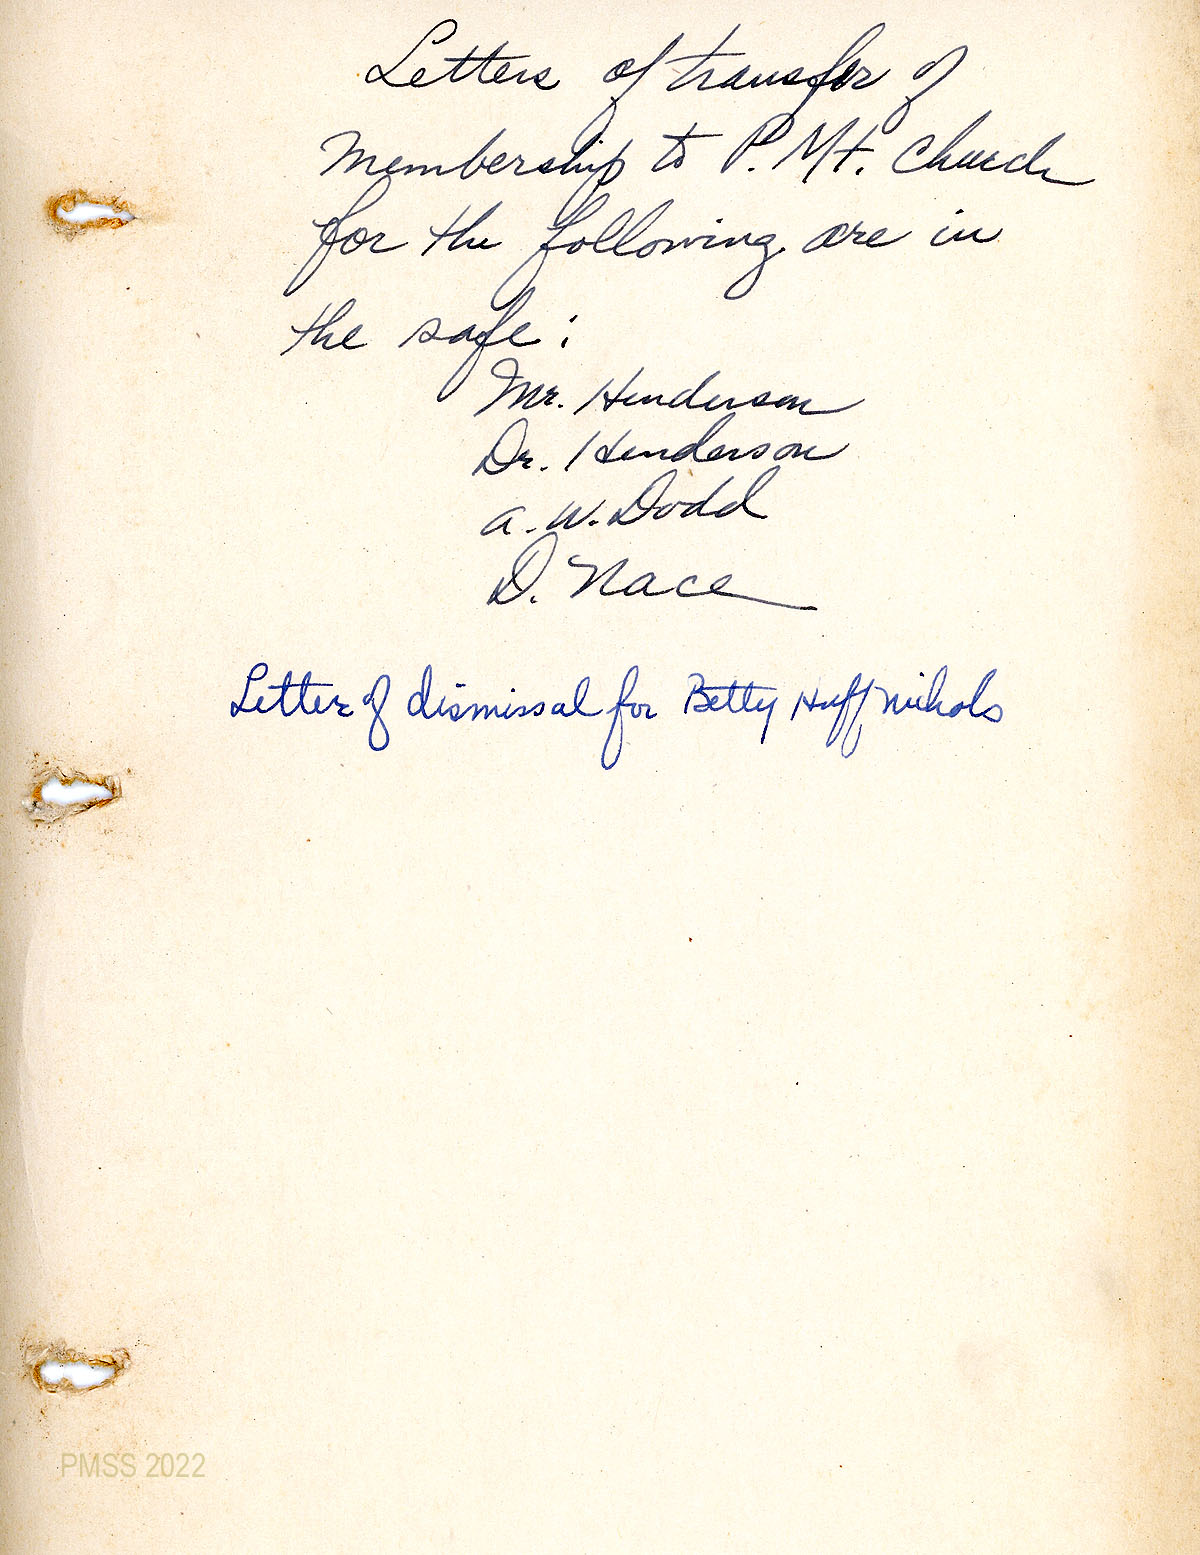 Letters of transfer of
Membership to P. Mt. Church
for the following are in
the safe:
Mr. Henderson
Dr. Henderson
A. W. Dodd
D. Nace
Letter of dismissal for Betty Huff Nichols
PMSS 2022